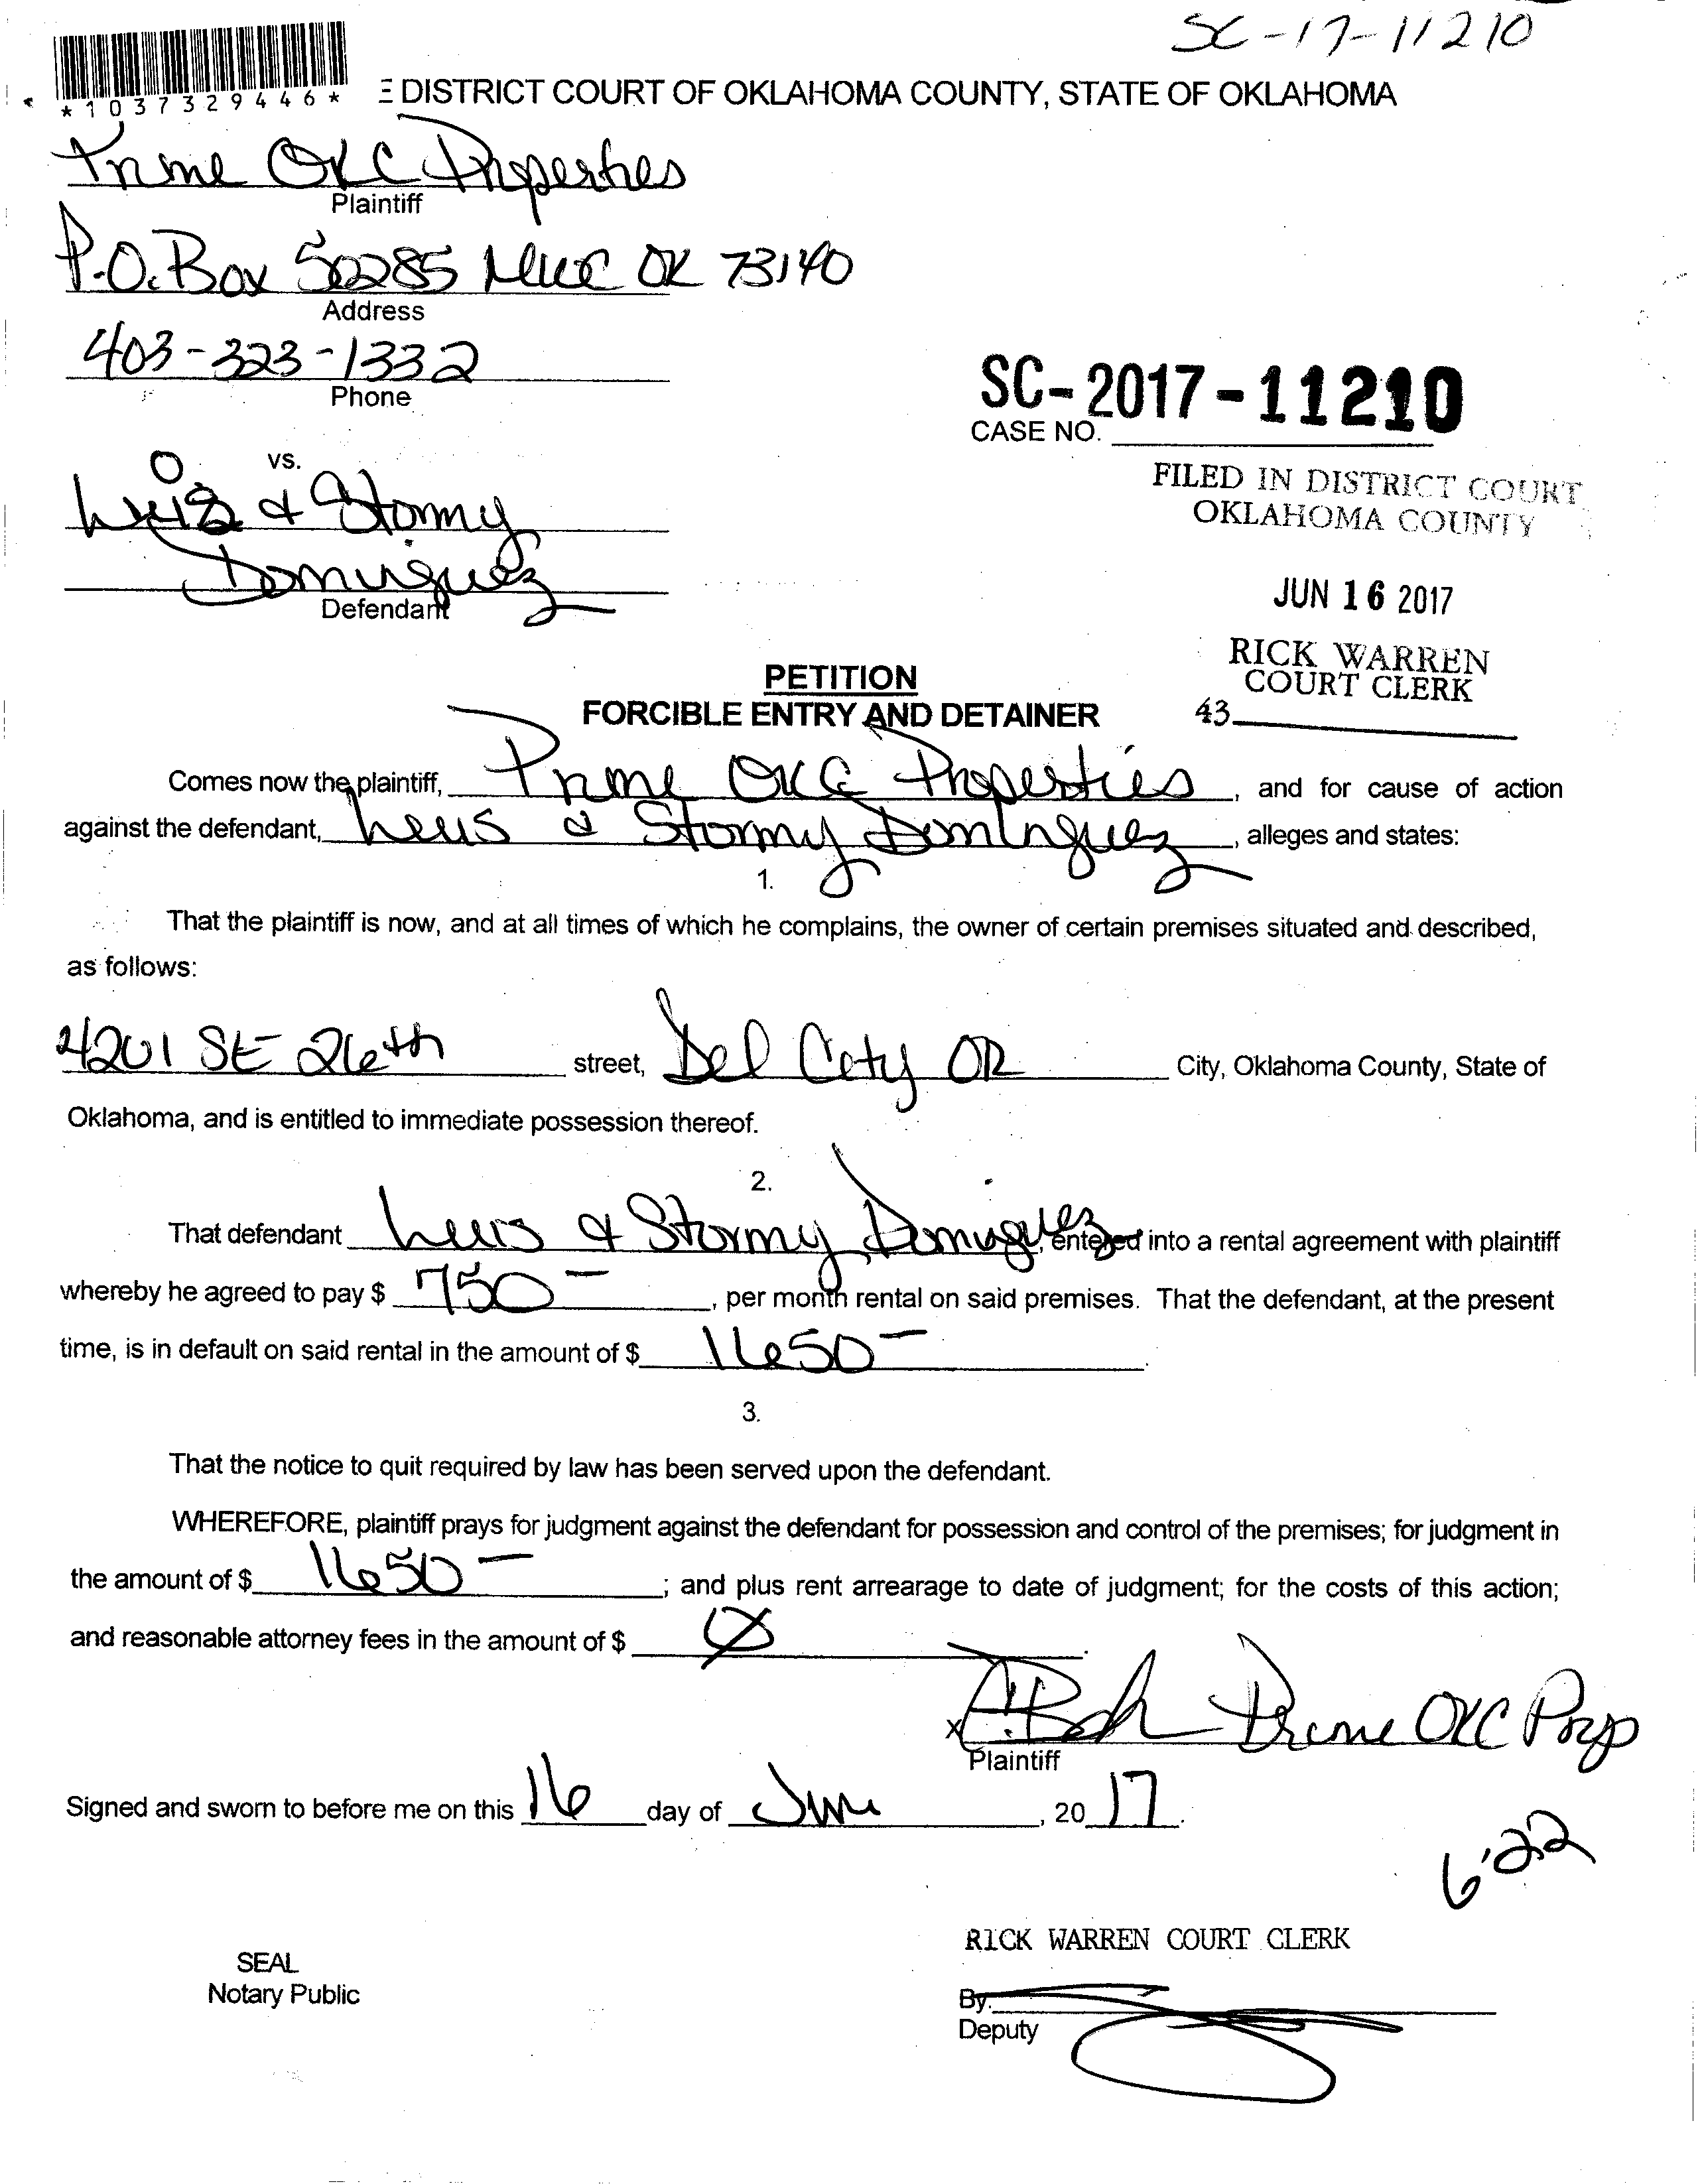 SC-17-11210
*1037329446*
E DISTRICT COURT OF OKLAHOMA COUNTY, STATE OF OKLAHOMA
Prime OKC Properties
Plaintiff
P.O. Box 50285 MWC OK 73140
Address
403-323-1332
Phone
SC-2017-11210
CASE NO.
vs.
FILED IN DISTRICT COURT
OKLAHOMA COUNTY
Luis & Stormy
Dominguez
Defendant
JUN 16 2017
RICK WARREN
COURT CLERK
43
PETITION
FORCIBLE ENTRY AND DETAINER
Comes now the plaintiff, Prime OKC Properties, and for cause of action
against the defendant, Luis & Stormy Dominguez, alleges and states:
1.
That the plaintiff is now, and at all times of which he complains, the owner of certain premises situated and described,
as follows:
4201 SE 26th street, Del City OK City, Oklahoma County, State of
Oklahoma, and is entitled to immediate possession thereof.
2.
That defendant Luis & Stormy Dominguez, entered into a rental agreement with plaintiff
whereby he agreed to pay $ 750-, per month rental on said premises. That the defendant, at the present
time, is in default on said rental in the amount of $ 1650-.
3.
That the notice to quit required by law has been served upon the defendant.
WHEREFORE, plaintiff prays for judgment against the defendant for possession and control of the premises; for judgment in
the amount of $ 1650-; and plus rent arrearage to date of judgment; for the costs of this action;
and reasonable attorney fees in the amount of $ Ø.
X Prime OKC Prop
Plaintiff
Signed and sworn to before me on this 16 day of June, 2017.
6-22
RICK WARREN COURT CLERK
SEAL
Notary Public
By:
Deputy